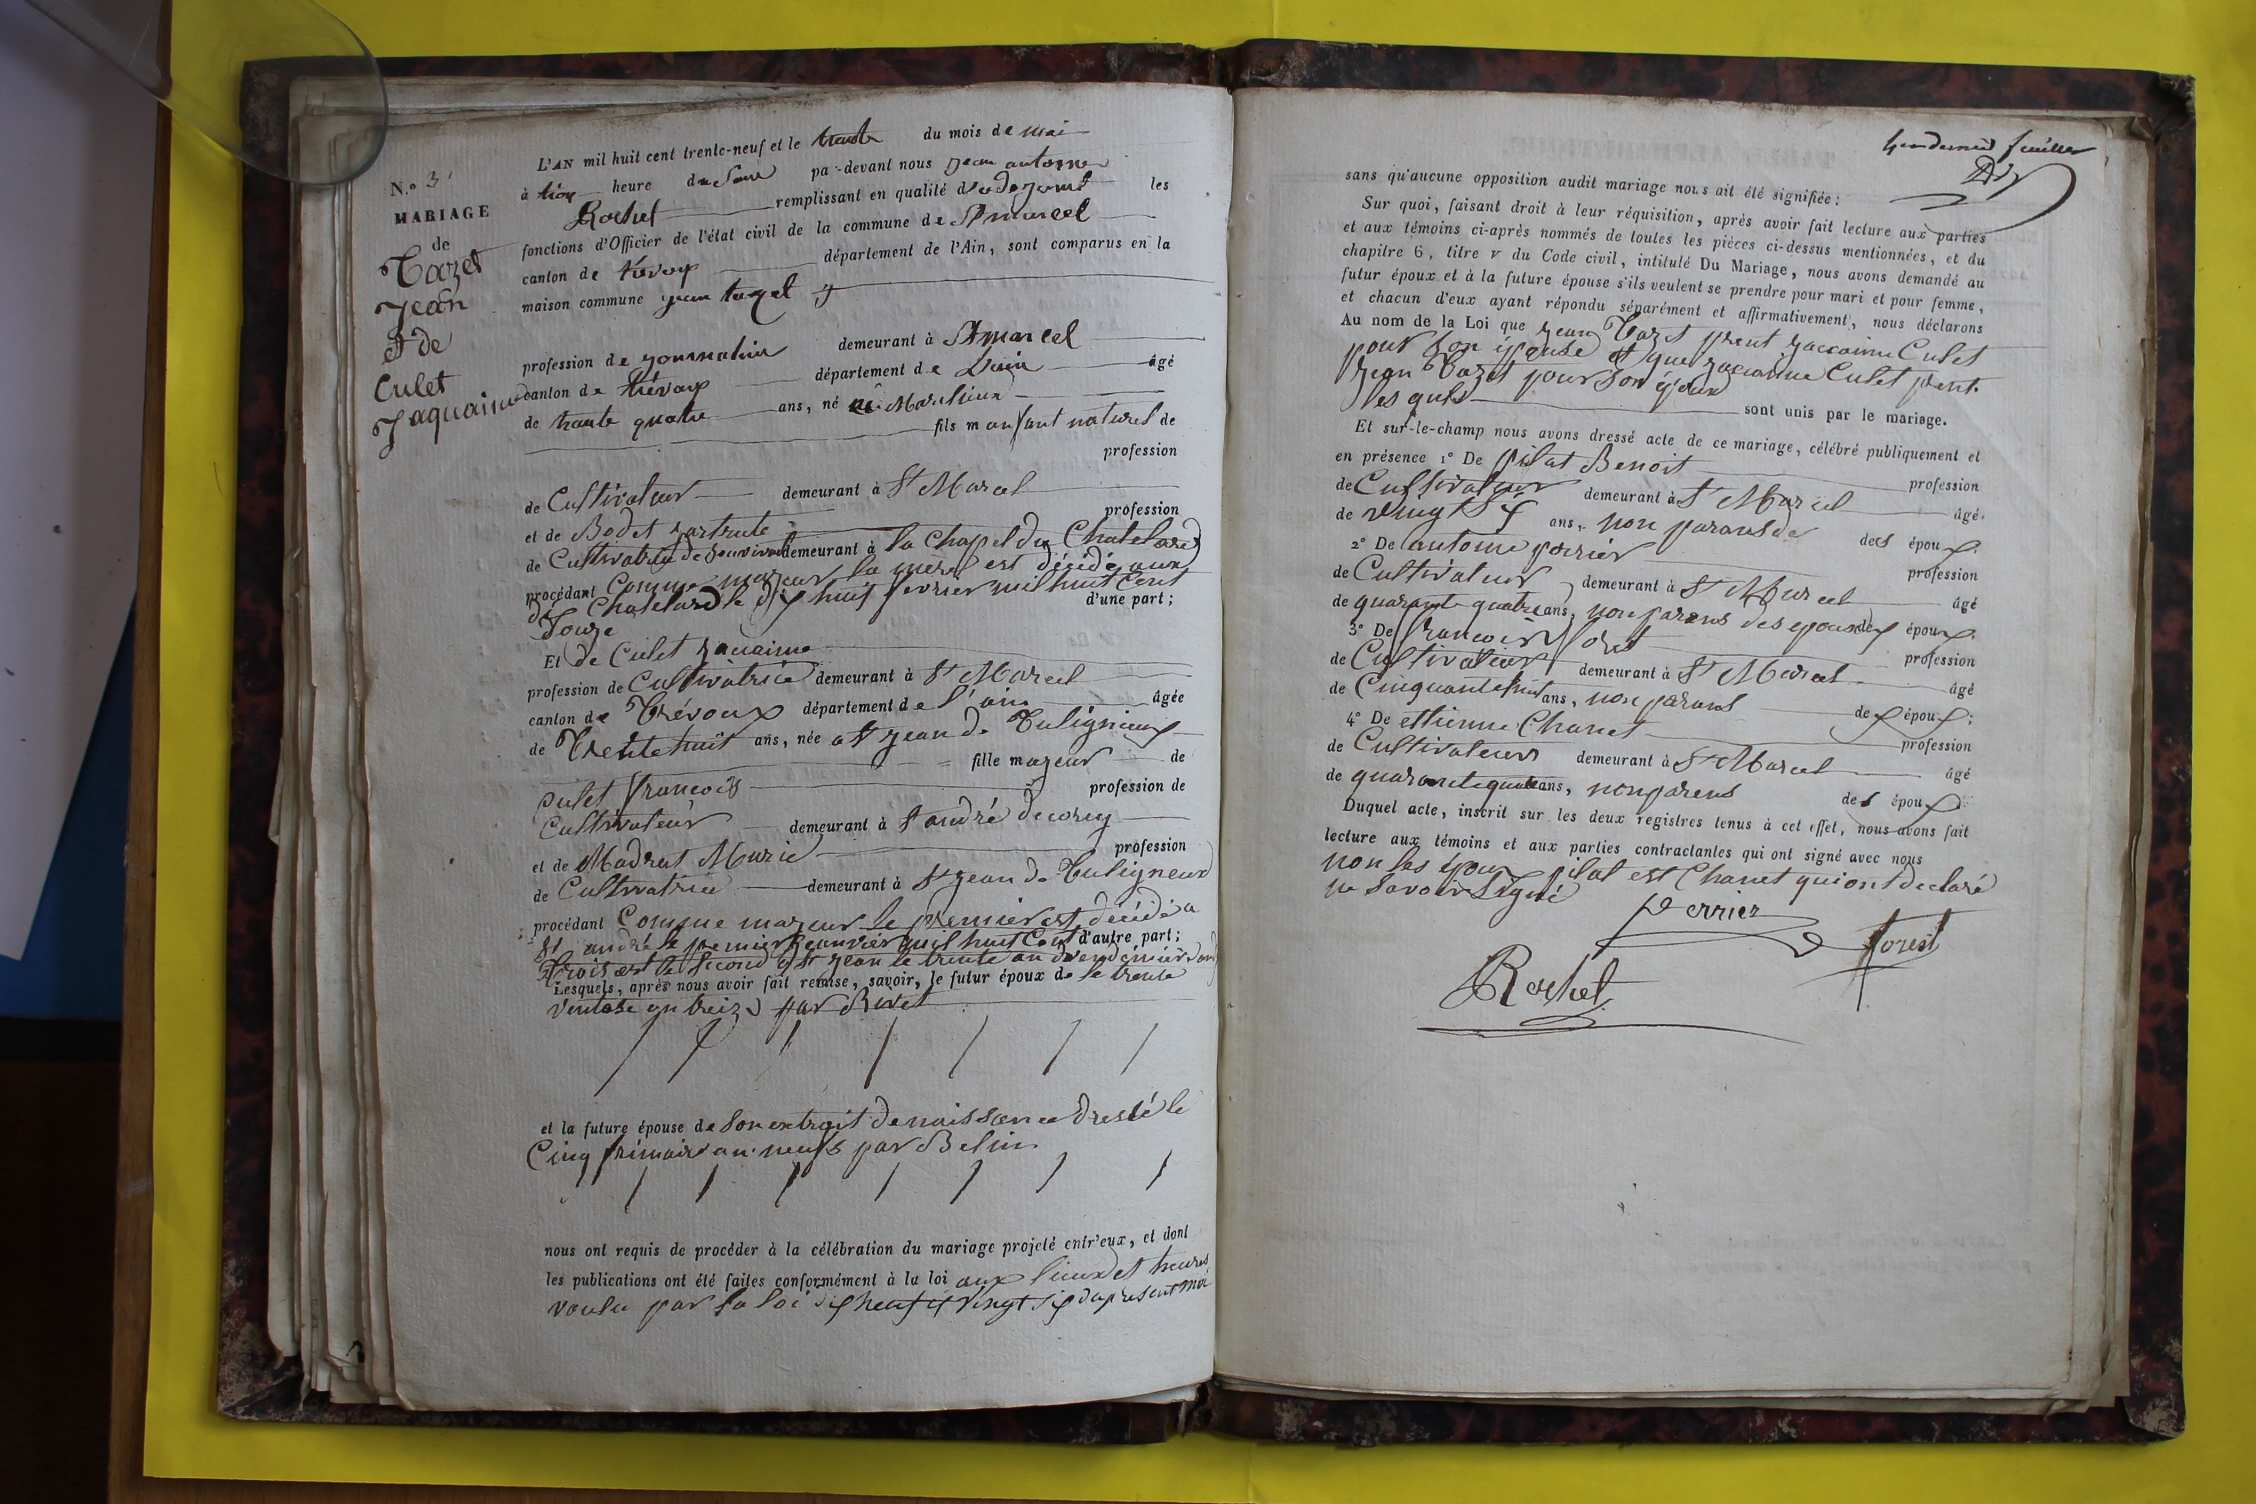 N.º 3
MARIAGE
de
Tazet
Jean
et de
Culet
Jaquaime
L'AN mil huit cent trente-neuf et le trente du mois de mai
à heure du Soir par-devant nous jean antoine
Rochet remplissant en qualité d'adejoint les
fonctions d'Officier de l'état civil de la commune de St marcel
canton de trévoux département de l'Ain, sont comparus en la
maison commune jean tazet
profession de journalier demeurant à St marcel
canton de trévoux département de L'ain âgé
de trante quatre ans, né à Marlieux
fils m enfant naturel de
profession
de Cultivateur demeurant à St Marcel
et de Bodet profession
de Cultivatrice de Souvivant demeurant à la Chapel du Chatelard
procédant Comme majeur la mere est décédé aux
d. Chatelard le dix huit fevrier mil huit Cent d'une part;
Douze
Et de Culet jacaime
profession de Cultivatrice demeurant à St Marcel
canton de Trévoux département de l'ain âgée
de Trente huit ans, née a St jean de Tuligneux
fille majeur de
culet francois profession de
Cultivateur demeurant à St andré decorcy
et de Madrat Marie profession
de Cultivatrice demeurant à St jean de Tuligneux
procédant Comme majeur le premier est décédé a
St andré le premier jeanvier mil huit Cent d'autre part;
trois est le second a St jean le trente an vendémier an
Lesquels, après nous avoir fait remise, savoir, le futur époux de le trente
Ventose an treize par Rivet
et la future épouse de Son extrait de naissance Dressé le
Cinq frimaire an neufs par Belin
nous ont requis de procéder à la célébration du mariage projeté entr'eux, et dont
les publications ont été faites conformément à la loi aux lieux et heures
voulu par la loi dix neuf et vingt six dupresent moi
feuillet
sans qu'aucune opposition audit mariage nous ait été signifiée:
Sur quoi, faisant droit à leur réquisition, après avoir fait lecture aux parties
et aux témoins ci-après nommés de toutes les pièces ci-dessus mentionnées, et du
chapitre 6, titre v du Code civil, intitulé Du Mariage, nous avons demandé au
futur époux et à la future épouse s'ils veulent se prendre pour mari et pour femme,
et chacun d'eux ayant répondu séparément et affirmativement, nous déclarons
Au nom de la Loi que jean Tazet prent jaccaime Culet
pour Son épouse et que jacaime Culet prent
jean Tazet pour Son époux
les quels sont unis par le mariage.
Et sur-le-champ nous avons dressé acte de ce mariage, célébré publiquement et
en présence 1º De pilat Benoit profession
de Cultivateur demeurant à St Marcel âgé
de vingt Six ans, non parans de des époux
2º De antoine perrier profession
de Cultivateur demeurant à St Marcel âgé
de quarante quatre ans, non parens des epoux de époux
3º De francois foret profession
de Cultivateur demeurant à St Marcel âgé
de Cinquante huit ans, non parans de époux;
4º De ettienne Chanet profession
de Cultivateur demeurant à St Marcel âgé
de quarante quatre ans, non parens des époux
Duquel acte, inscrit sur les deux registres tenus à cet effet, nous avons fait
lecture aux témoins et aux parties contractantes qui ont signé avec nous
non les époux pilat est Chanet qui ont declaré
ne Savoir Signé
Perrier
forest
Rochet